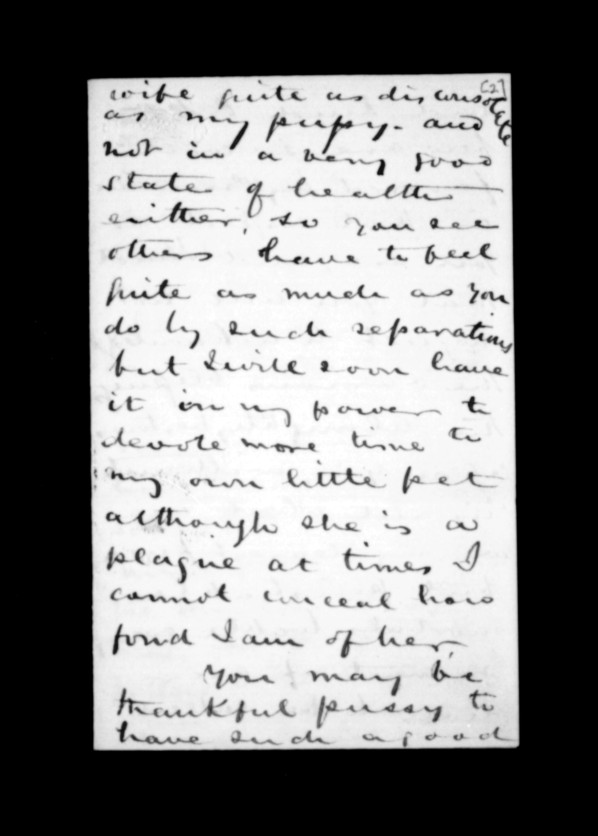 [2]
wife quite as disconsolate
as my pupsy. and
not in a very good
state of health
either, so you see
others have to feel
quite as much as you
do by such separations
but I will soon have
it in my power to
devote more time to
my own little pet
although she is a
plague at times I
cannot conceal how
fond I am of her.
You may be
thankful pussy to
have such a good